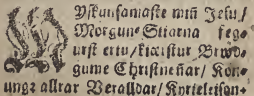 Yskunsamaste minn Jesu/
Morgun-Stiarna fege-
urst ertu/ kiæristur Brwd-
gume Christiennar/ Kon-
ungr allrar Veralldar/ Kyrieleison.